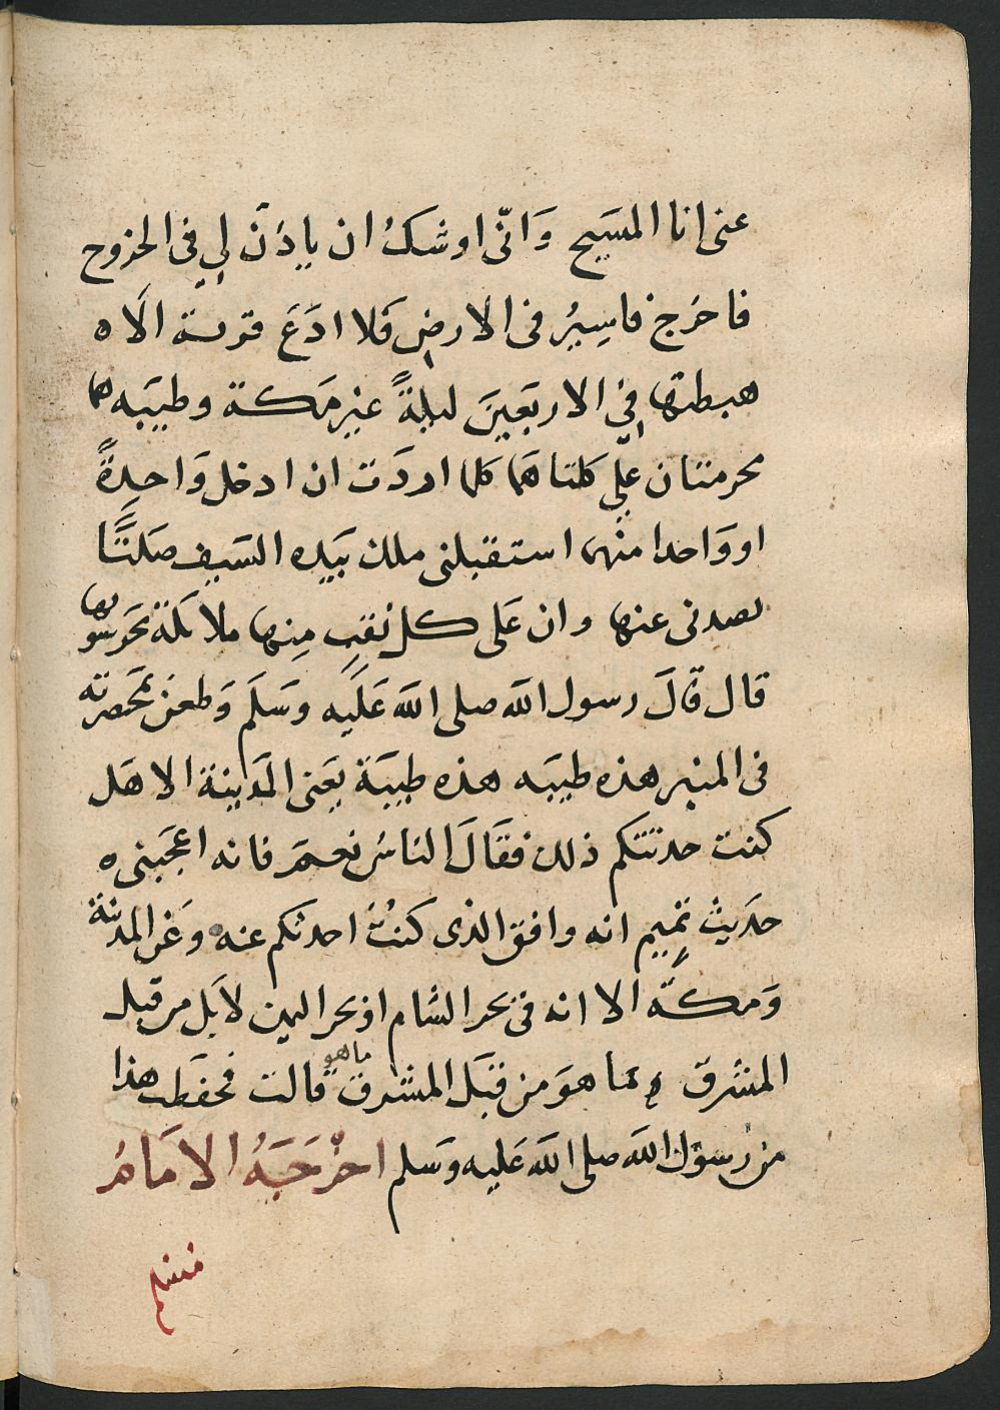 عنى انا المسَيح وَانّى اوشكُ ان ياذن لى فى الخروج
فاخرَج فاسِيرُ فى الارض فَلا ادَعَ قرىة الَا ه
هبطتها فى الاربَعينَ ليلةً غير مَكة وطيبَه هما
محرمتان على كلتاهَما كلما اردَت ان ادخل وَاحدةً
او وَاحدا منهما استقبلنى ملك بَيده السَيف صَلتًا
يصدنى عنها وان عَلى كل نقب مِنها ملائكة يحَرسونها
قال قَالَ رسول الله صلى الله عَليَه وسَلَم وَطعن بمخصرته
فى المنبر هذه طيبَه هذه طيبَة يعَنى المَدينة الا هَل
كنت حدثتكم ذلك فقَالَ الناسُ نعمَر فانه اعجَبنى ه
حدَيث تميم انه وافق الذى كنتُ احدثكم عنه وعَن المدينة
وَمكّه الا انه فى بحر الشام او بحر اليمن لابَل من قبل
المشرق ما هوَ من قبَل المشرق ما هو قالت فحفظت هذا
من رسول الله صلى الله عَليه وسَلم اخرَجَهُ الامَامُ
مسلم